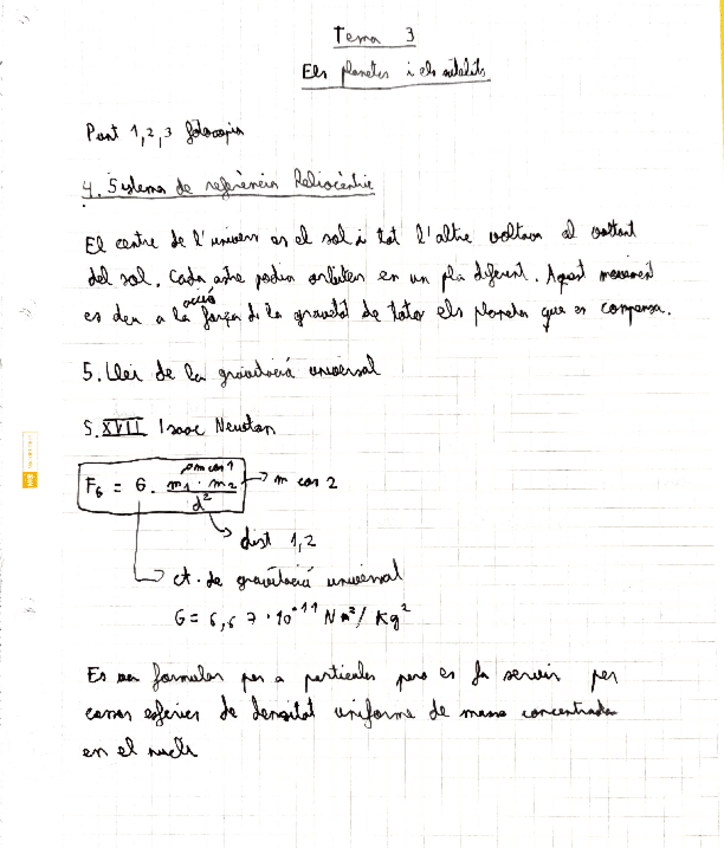 Tema 3
Els planetes i els satèl·lits
Punt 1,2,3 fotocopia
4. Sistema de referència Heliocèntric
El centre de l'univers es el sol i tot l'altre voltava al voltant
del sol. Cada astre podia orbitar en un pla diferent. Aquest moviment
es deu a la acció força de la gravetat de totos els planetes que es compensa.
5. Llei de la gravitació universal
S.XVII Isaac Newton
m cos 1
F₆ = G . m₁ · m₂ / d² → m cos 2
dist 1,2
ct. de gravitació universal
G = 6,67 · 10⁻¹¹ N m² / Kg²
Es formular per a particules pero es fa servir per
cossos esferics de densitat uniforme de massa concentrada
en el nucli